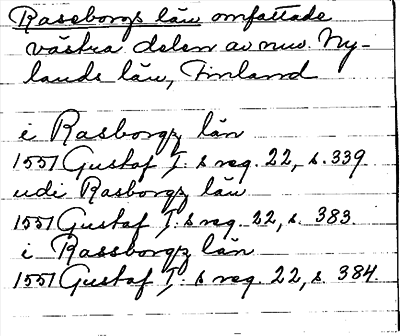 Raseborgs län omfattade
västra delen av nuv. Ny-
lands län, Finland
i Rasborgz län
1551 Gustaf I: s reg. 22, s. 339
udi Rasborgz län
1551 Gustaf I: s reg. 22, s. 383.
i Rassborgz län
1551 Gustaf I: s reg. 22, s. 384.